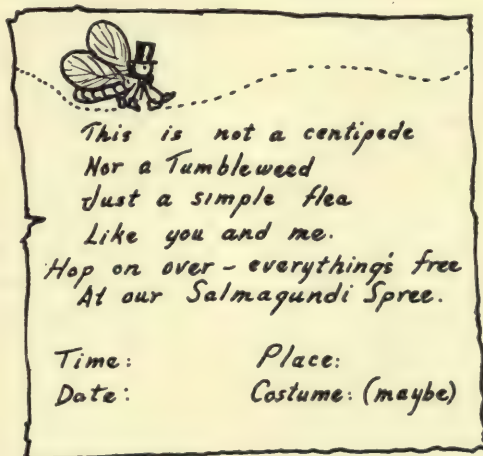 This is not a centipede
Nor a Tumbleweed
Just a simple flea
Like you and me.
Hop on over - everything's free
At our Salmagundi Spree.
Time: Place:
Date: Costume: (maybe)